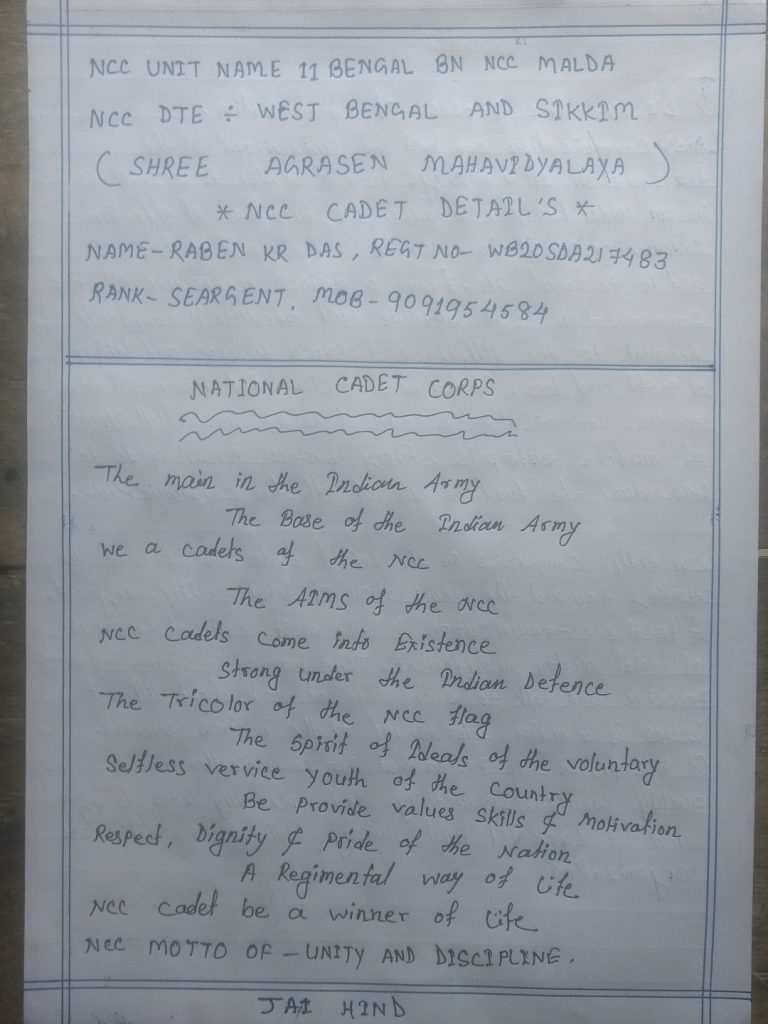 NCC UNIT NAME 11 BENGAL BN NCC MALDA
NCC DTE ÷ WEST BENGAL AND SIKKIM
( SHREE AGRASEN MAHAVIDYALAYA )
* NCC CADET DETAIL'S *
NAME- RABEN KR DAS, REGT NO- WB20SDA217483
RANK- SEARGENT, MOB- 9091954584
NATIONAL CADET CORPS
The main in the Indian Army
The Base of the Indian Army
we a cadets of the NCC
The AIMS of the NCC
NCC cadets come into Existence
Strong under the Indian Defence
The Tricolor of the NCC flag
The Spirit of Ideals of the voluntary
Selfless vervice youth of the country
Be provide values skills & Motivation
Respect, Dignity & pride of the Nation
A Regimental way of life
NCC cadet be a winner of life
NCC MOTTO OF - UNITY AND DISCIPLINE.
JAI HIND